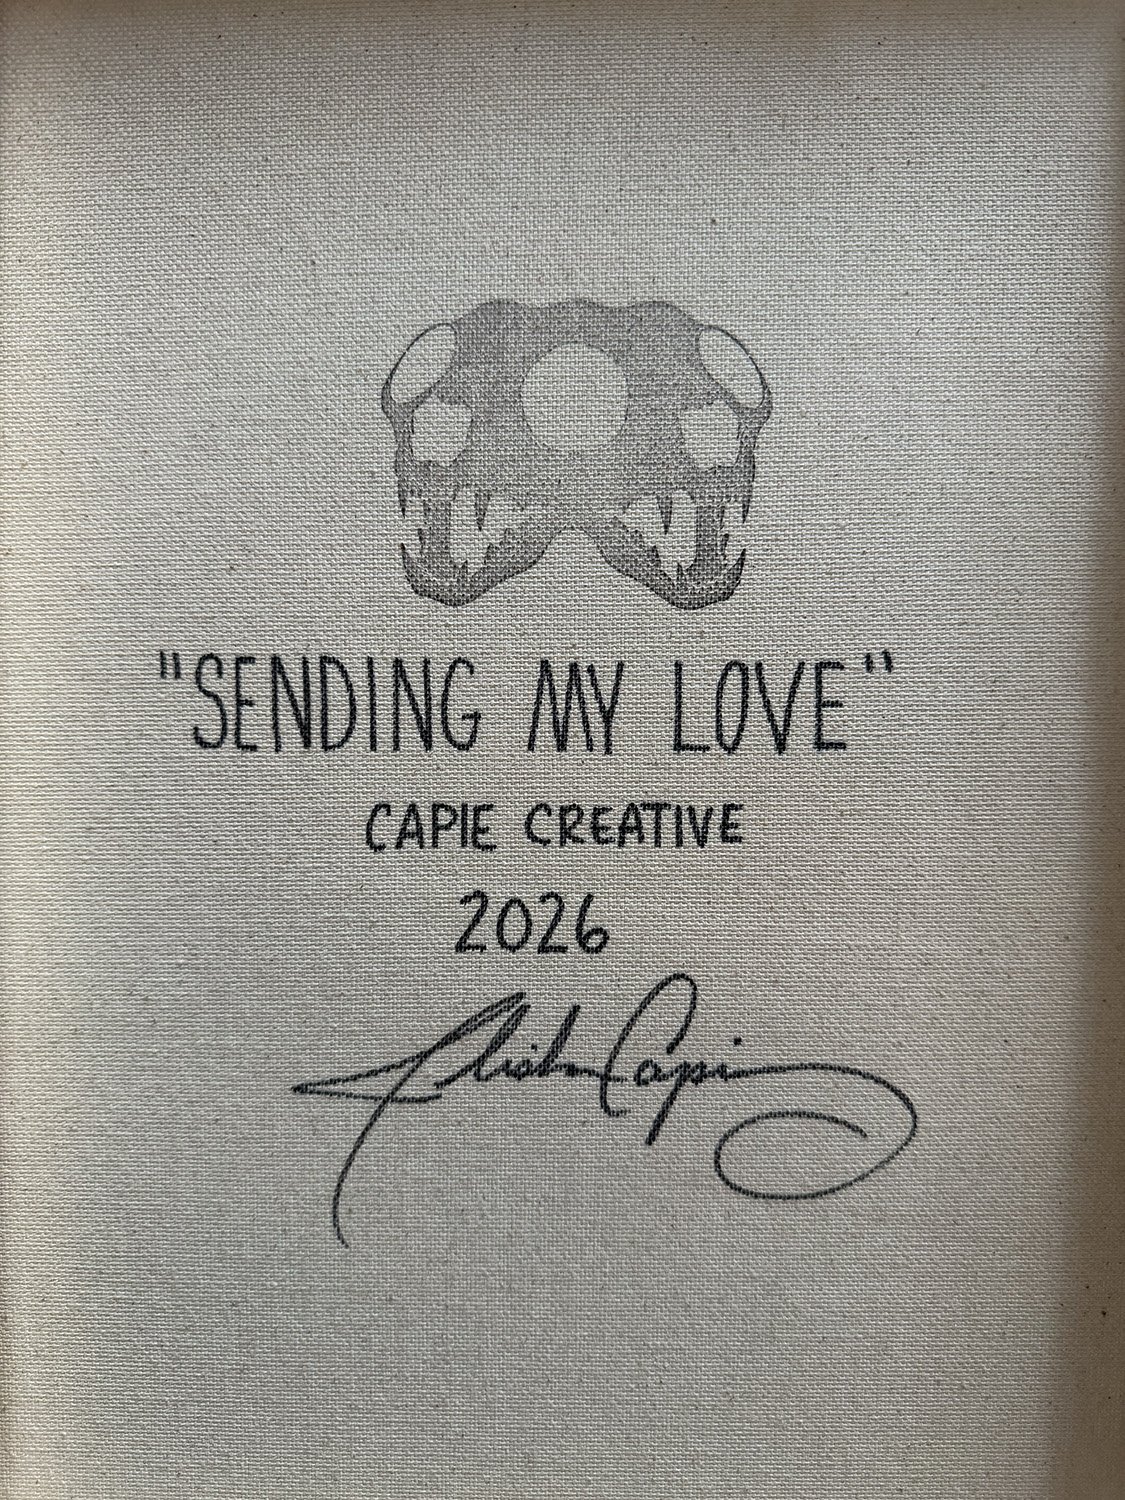 "SENDING MY LOVE"
CAPIE CREATIVE
2026
Capie